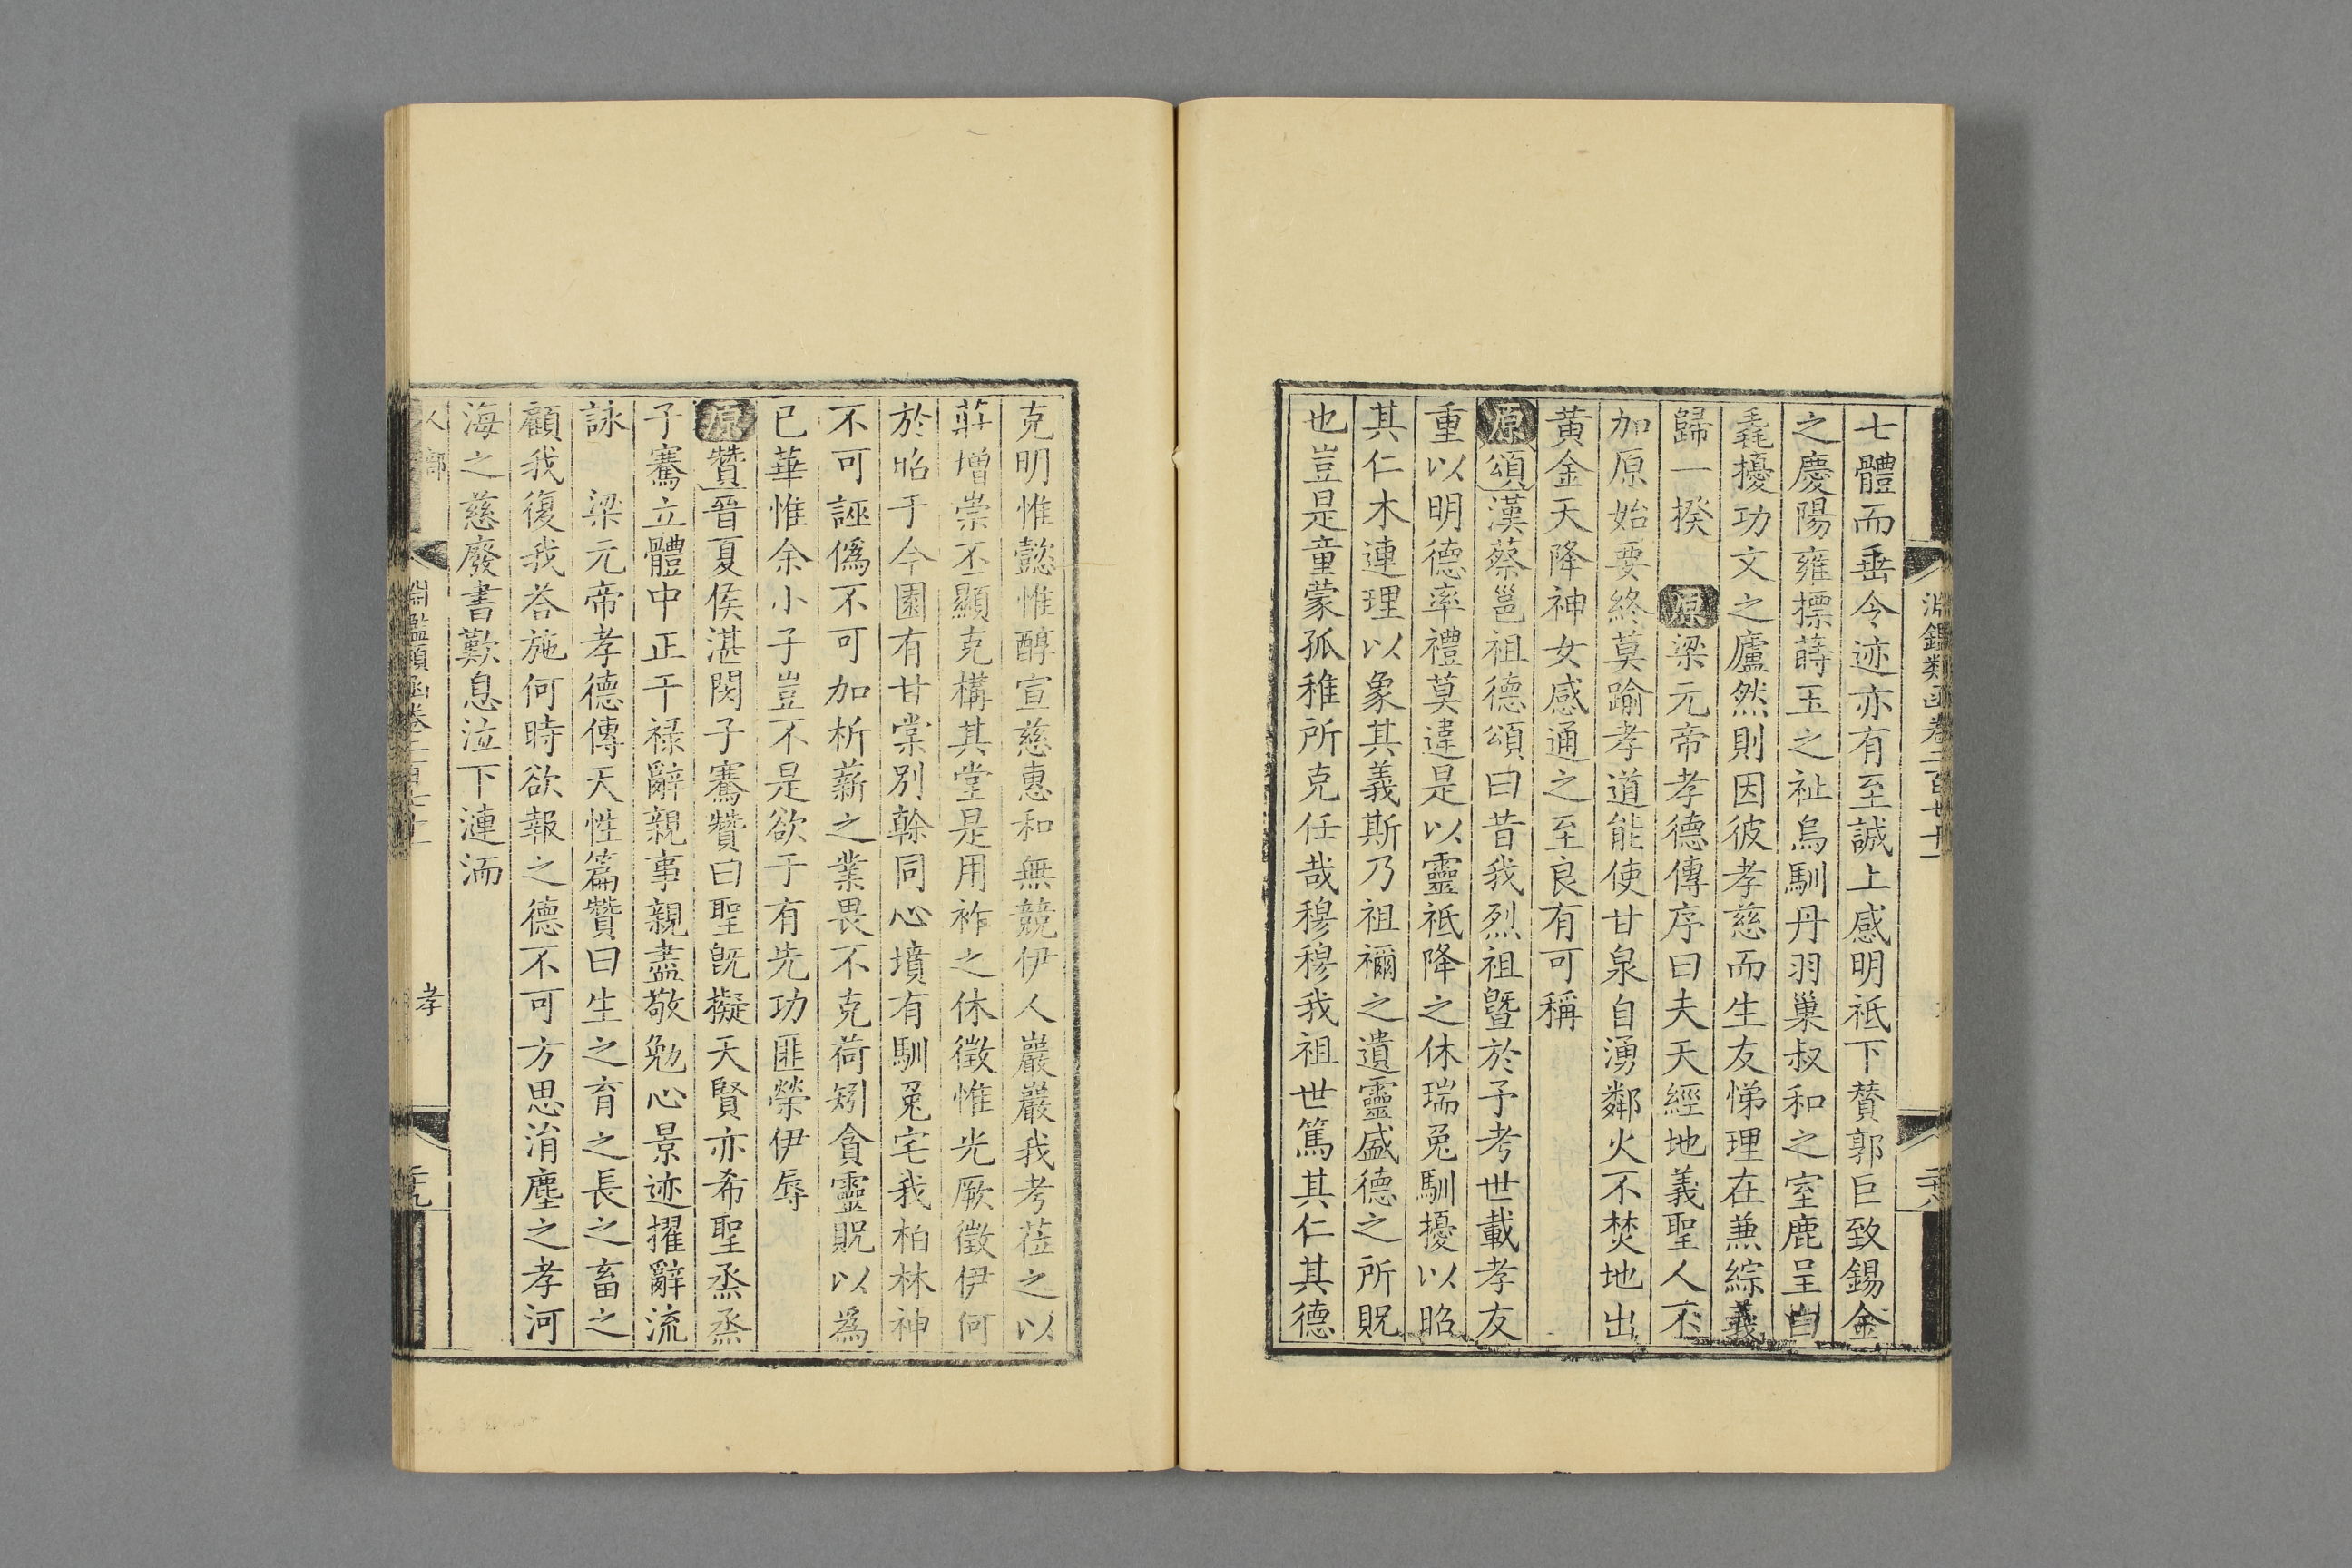 淵鑑類函卷二百七十一
二十八
七體而垂令迹亦有至誠上感明祗下賛郭巨致錫金
之慶陽雍摽蒔玉之祉烏馴丹羽巢叔和之室鹿呈白
毳擾功文之廬然則因彼孝慈而生友悌理在兼綜義
歸一揆 原梁元帝孝德傳序曰夫天經地義聖人不
加原始要終莫踰孝道能使甘泉自湧鄰火不焚地出
黄金天降神女感通之至良有可稱
原頌漢蔡邕祖德頌曰昔我烈祖曁於予考世載孝友
重以明德率禮莫違是以靈祗降之休瑞兎馴擾以昭
其仁木連理以象其義斯乃祖禰之遺靈盛德之所貺
也豈是童蒙孤稚所克任哉穆穆我祖世篤其仁其德
克明惟懿惟醇宣慈惠和無競伊人巖巖我考莅之以
莊增崇丕顯克構其堂是用祚之休徵惟光厥徵伊何
於昭于今園有甘棠别榦同心墳有馴兎宅我柏林神
不可誣僞不可加析薪之業畏不克荷矧貪靈貺以爲
已華惟余小子豈不是欲于有先功匪榮伊辱
原贊晉夏侯湛閔子騫贊曰聖旣擬天賢亦希聖烝烝
子騫立體中正干禄辭親事親盡敬勉心景迹擢辭流
詠 梁元帝孝德傳天性篇贊曰生之育之長之畜之
顧我復我答施何時欲報之德不可方思涓塵之孝河
海之慈廢書歎息泣下漣洏
人部
淵鑑類函卷二百七十一
孝
二十九